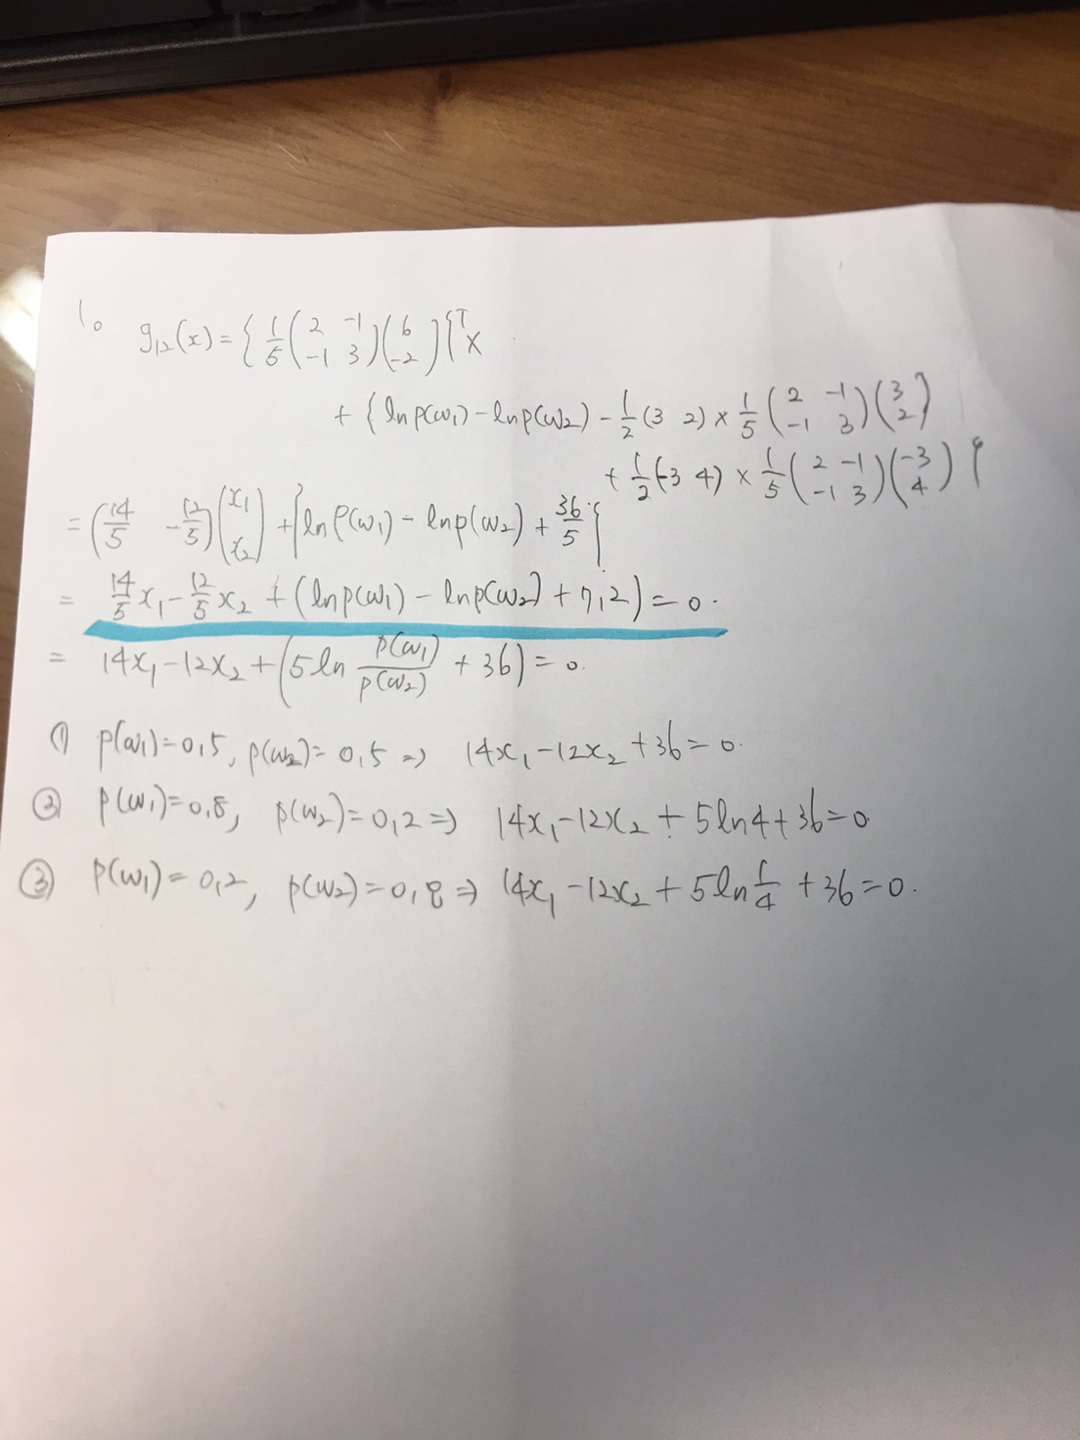 1。
g₁₂(x) = { 1/5 (2 -1 / -1 3)(6 / -2) }ᵀ x
+ { ln p(ω₁) - ln p(ω₂) - 1/2 (3 2) × 1/5 (2 -1 / -1 3)(3 / 2)
+ 1/2 (-3 4) × 1/5 (2 -1 / -1 3)(-3 / 4) }
= (14/5 -12/5)(x₁ / x₂) + { ln P(ω₁) - ln p(ω₂) + 36/5 }
= 14/5 x₁ - 12/5 x₂ + (ln p(ω₁) - ln p(ω₂) + 7,2) = 0.
= 14x₁ - 12x₂ + (5 ln p(ω₁)/p(ω₂) + 36) = 0.
① p(ω₁) = 0,5, p(ω₂) = 0,5 => 14x₁ - 12x₂ + 36 = 0.
② p(ω₁) = 0,8, p(ω₂) = 0,2 => 14x₁ - 12x₂ + 5 ln 4 + 36 = 0
③ p(ω₁) = 0,2, p(ω₂) = 0,8 => 14x₁ - 12x₂ + 5 ln 1/4 + 36 = 0.